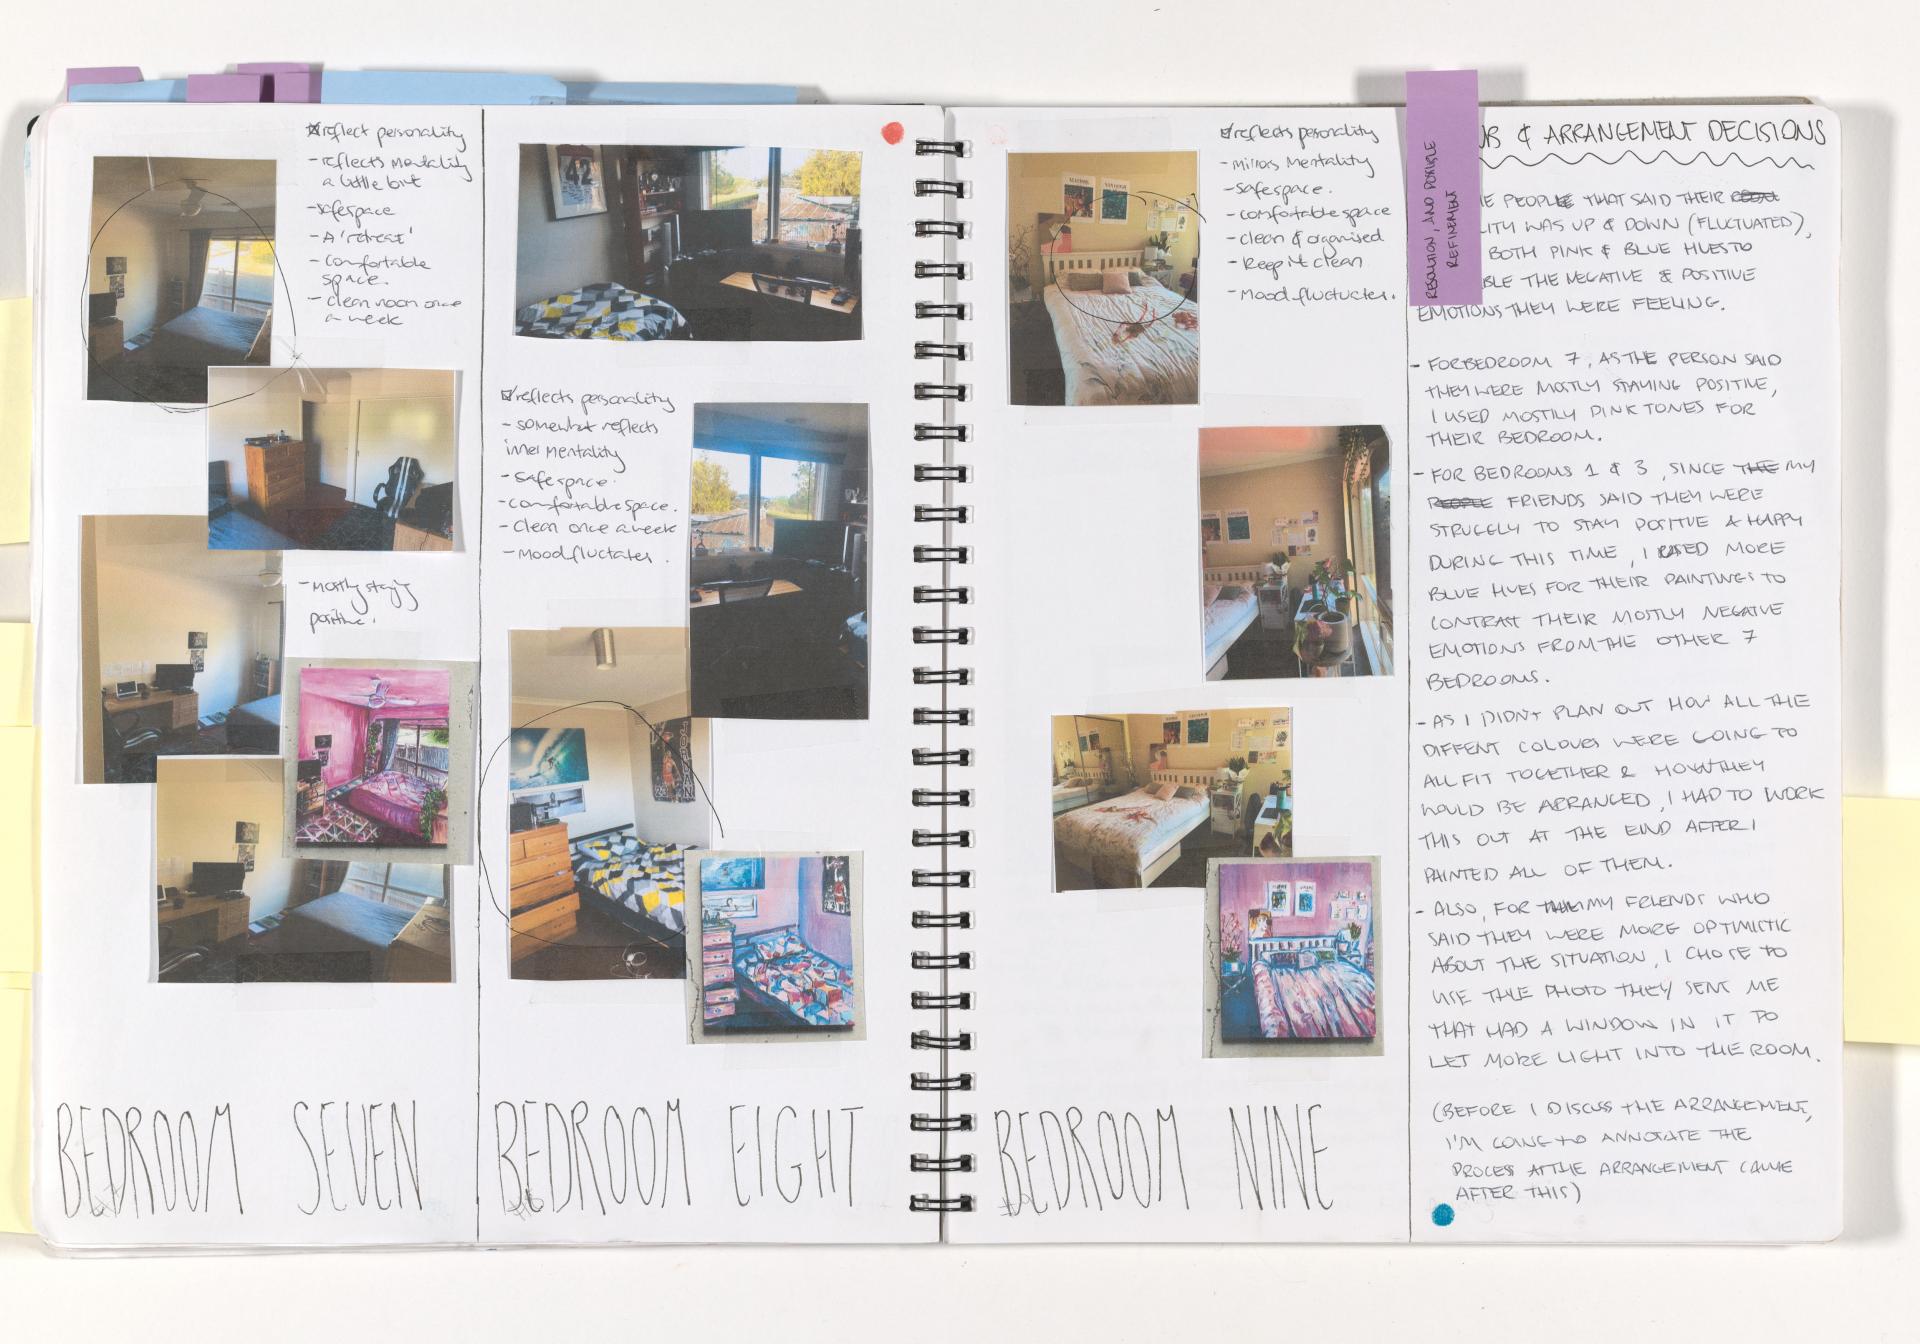 reflect personality
- reflects mentality
a little bit
- safespace
- A 'retreat'
- comfortable
space.
- clean room once
a week
- mostly staying
positive.
BEDROOM SEVEN
42
reflects personality
- somewhat reflects
inner mentality
- safespace.
- comfortable space.
- clean once a week
- Mood fluctates.
BEDROOM EIGHT
reflects personality
- mirrors mentality
- safespace.
- comfortable space
- clean & organised
- keep it clean
- Mood fluctuates.
BEDROOM NINE
RESOLUTION, AND POSSIBLE
REFINEMENT
& ARRANGEMENT DECISIONS
PEOPLE THAT SAID THEIR
LITY WAS UP & DOWN (FLUCTUATED),
BOTH PINK & BLUE HUES TO
BLE THE NEGATIVE & POSITIVE
EMOTIONS THEY WERE FEELING.
- FOR BEDROOM 7, AS THE PERSON SAID
THEY WERE MOSTLY STAYING POSITIVE,
I USED MOSTLY PINK TONES FOR
THEIR BEDROOM.
- FOR BEDROOMS 1 & 3, SINCE THE MY
PEOPLE FRIENDS SAID THEY WERE
STRUGGLY TO STAY POSITIVE & HAPPY
DURING THIS TIME, I USED MORE
BLUE HUES FOR THEIR PAINTINGS TO
CONTRAST THEIR MOSTLY NEGATIVE
EMOTIONS FROM THE OTHER 7
BEDROOMS.
- AS I DIDN'T PLAN OUT HOW ALL THE
DIFFENT COLOURS WERE GOING TO
ALL FIT TOGETHER & HOW THEY
WOULD BE ARRANGED, I HAD TO WORK
THIS OUT AT THE END AFTER I
PAINTED ALL OF THEM.
- ALSO, FOR MY FRIENDS WHO
SAID THEY WERE MORE OPTIMISTIC
ABOUT THE SITUATION, I CHOSE TO
USE THE PHOTO THEY SENT ME
THAT HAD A WINDOW IN IT TO
LET MORE LIGHT INTO THE ROOM.
(BEFORE I DISCUSS THE ARRANGEMENT,
I'M GOING TO ANNOTATE THE
PROCESS AS THE ARRANGEMENT CAME
AFTER THIS)